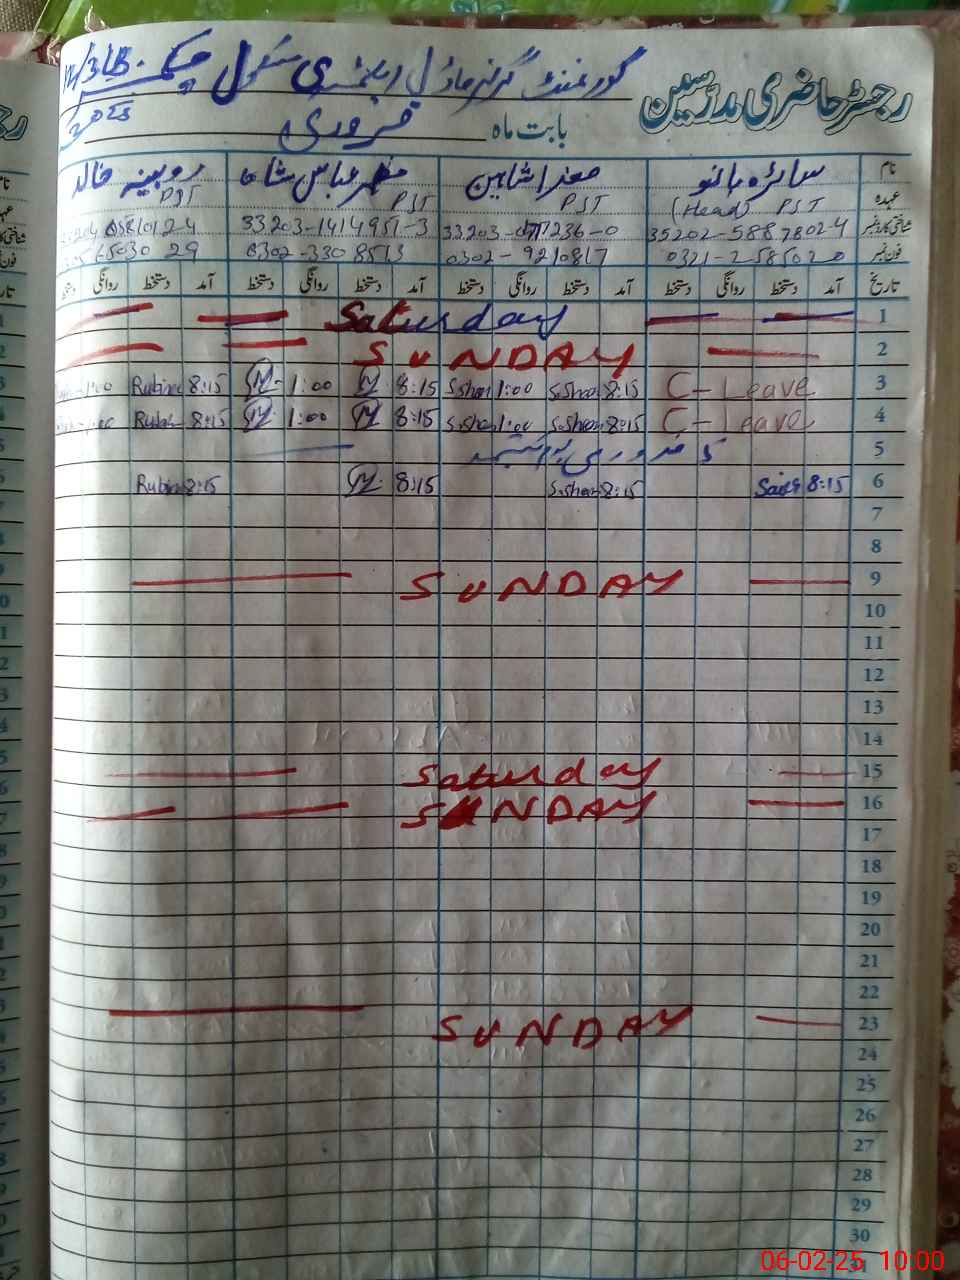 رجسٹر حاضری مدرسین گورنمنٹ گرلز ماڈل پرائمری سکول چک
بابت ماہ فروری
نام سائرہ بانو صغرا شاہین مظہر عباس شاہ روبینہ خالد
عہدہ (Head) PST PST PST PST
شناختی کارڈ نمبر 35202-5887802-4 33203-1414951-3
فون نمبر 0321-2585020 0302-9210817 0302-3308513
تاریخ آمد دستخط روانگی دستخط آمد دستخط روانگی دستخط آمد دستخط روانگی دستخط آمد دستخط روانگی دستخط
1 Saturday
2 SUNDAY
3 C-Leave 8:15 S.Shan 1:00 S.Shan 8:15 1:00 8:15 Rubina 1:00
4 C-Leave 8:15 S.Shan 1:00 S.Shan 8:15 1:00 8:15 1:00
5 5 فروری
6 8:15 8:15 S.Shan 8:15 8:15 Rubina
7
8
9 SUNDAY
10
11
12
13
14
15 Saturday
16 SUNDAY
17
18
19
20
21
22
23 SUNDAY
24
25
26
27
28
29
30
31
06-02-25 10:00